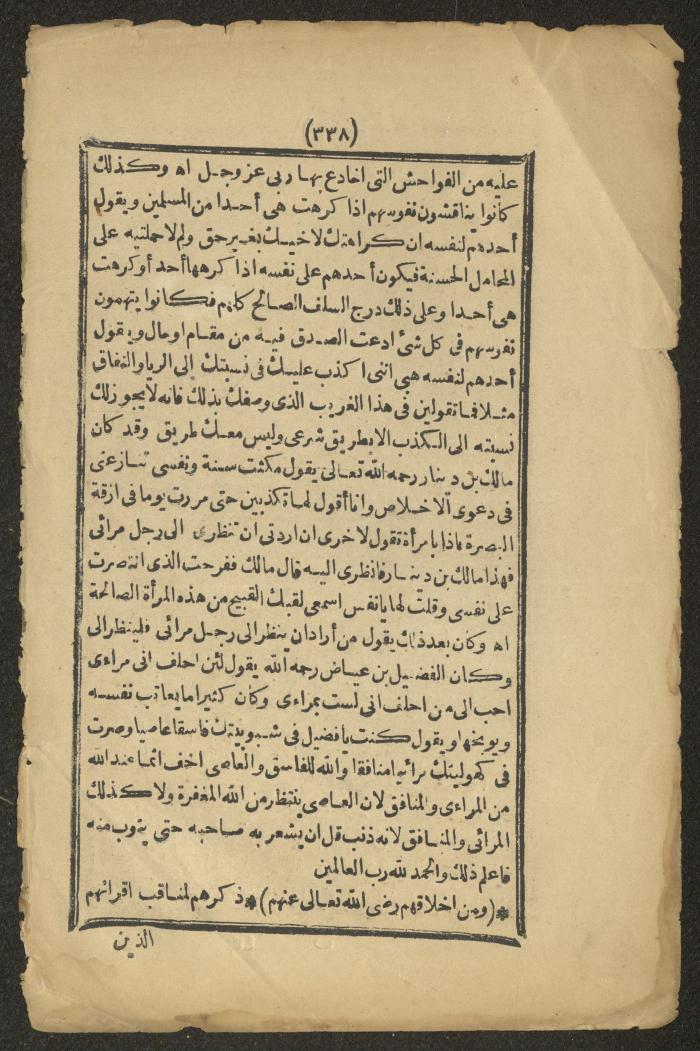 (٣٣٨)
عليه من الفواحش التى اخادع بها ربى عز وجل اه وكذلك
كانوا يناقشون نفوسهم اذا كرهت هى أحدا من المسلمين ويقول
أحدهم لنفسه ان كراهتك لاخيك بغير حق ولم لا حملتيه على
المحامل الحسنة فيكون أحدهم على نفسه اذا كرهها أحد أو كرهت
هى أحدا وعلى ذلك درج السلف الصالح كلهم فكانوا يتهمون
نفوسهم فى كل شئ ادعت الصدق فيه من مقام او حال ويقول
أحدهم لنفسه هبى اننى اكذب عليك فى نسبتك إلى الريا والنفاق
مثلا فما تقولين فى هذا الغريب الذى وصفك بذلك فانه لا يجوز لك
نسبته الى الكذب الا بطريق شرعى وليس معك طريق وقد كان
مالك بن دينار رحمه الله تعالى يقول مكثت سنة ونفسى تنازعنى
فى دعوى الاخلاص وانا أقول لها تكذبين حتى مررت يوما فى ازقة
البصرة فاذا بامرأة تقول لاخرى ان اردتى ان تنظرى الى رجل مرائى
فهذا مالك بن دينار فانظرى اليه قال مالك ففرحت الذى انتصرت
على نفسى وقلت لها يا نفس اسمعى لقبك القبيح من هذه المرأة الصالحة
اه وكان بعد ذلك يقول من أراد ان ينظر الى رجل مرائى فلينظر الى
وكان الفضيل بن عياض رحمه الله يقول لئن احلف انى مراءى
احب الى من احلف انى لست بمراءى وكان كثيرا ما يعاتب نفسه
ويوبخها ويقول كنت يا فضيل فى شبوبيتك فاسقا عاصيا وصرت
فى كهوليتك مرائيا منافقا والله للفاسق والعاصى اخف اثما عند الله
من المراءى والمنافق لان العاصى ينتظر من الله المغفرة ولا كذلك
المرائى والمنافق لانه ذنب قل ان يشعر به صاحبه حتى يتوب منه
فاعلم ذلك والحمد لله رب العالمين
*(ومن اخلاقهم رضى الله تعالى عنهم)* ذكرهم لمناقب اقرانهم
الذين